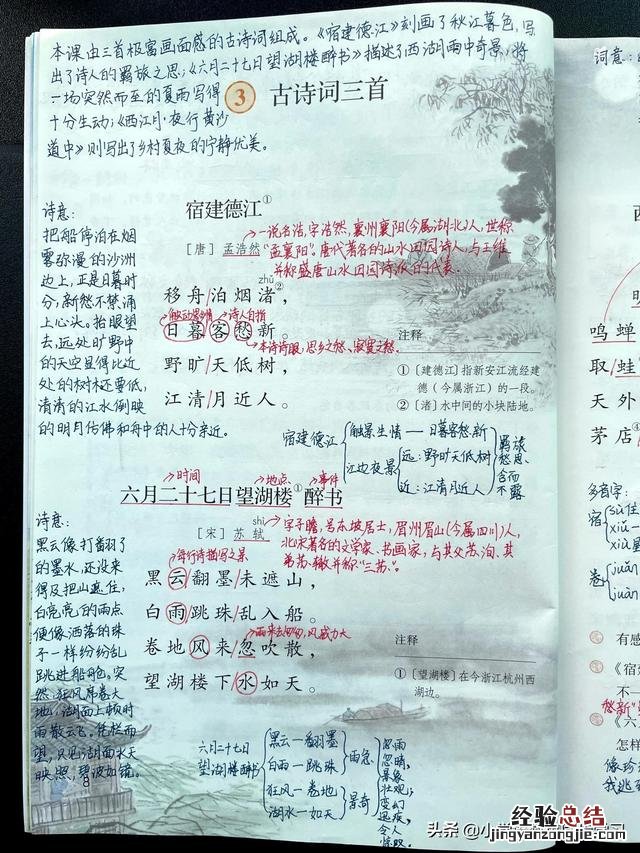 本课由三首极富画面感的古诗词组成。《宿建德江》刻画了秋江暮色,写
出了诗人的羁旅之思;《六月二十七日望湖楼醉书》描述了西湖雨中奇景,将
一场突然而至的夏雨写得
十分生动;《西江月·夜行黄沙
道中》则写出了乡村夏夜的宁静优美。
3 古诗词三首
宿建德江①
[唐] 孟浩然
一说名浩,字浩然,襄州襄阳(今属湖北)人,世称
“孟襄阳”。唐代著名的山水田园诗人,与王维
并称盛唐山水田园诗派的代表.
诗意:
把船停泊在烟
雾弥漫的沙洲
边上,正是日暮时
分,新愁不禁涌
上心头。抬眼望
去,远处旷野中
的天空显得比近
处的树林还要低,
清清的江水倒映
的明月仿佛和舟中的人十分亲近。
zhǔ
移舟/泊烟渚②,
触动思乡情 诗人自指
日暮/客愁新。
本诗诗眼,思乡之愁、寂寞之愁.
野旷/天低树,
江清/月近人。
注释
①〔建德江〕指新安江流经建
德(今属浙江)的一段。
②〔渚〕水中间的小块陆地。
宿建德江
触景生情—日暮客愁新
江边夜景
远:野旷天低树
近:江清月近人
羁旅
愁思、
含而
不露
时间 地点 事件
六月二十七日望湖楼①醉书
shì
[宋] 苏轼
字子瞻,号东坡居士,眉州眉山(今属四川)人,
北宋著名的文学家、书画家,与其父苏洵、其
弟苏辙并称“三苏”.
诗意:
黑云像打翻了
的墨水,还没来
得及把山遮住,
白亮亮的雨点
便像洒落的珠
子一样纷纷乱
跳进船舱。突
然,狂风席卷大
地,湖面上顿时
雨散云飞。凭栏而
望,只见湖面水天
映照,碧波如镜。
每行诗描写之景
黑云/翻墨/未遮山,
白雨/跳珠/乱入船。
雨来去匆匆,风威力大
卷地/风来/忽吹散,
望湖楼下/水如天。
注释
①〔望湖楼〕在今浙江杭州西
湖边。
六月二十七日
望湖楼醉书
黑云—翻墨
白雨—跳珠
雨急
狂风—卷地
湖水—如天
景奇
忽雨
忽晴,
景象
壮观;
变幻
迅疾,
令人
惊叹.
8
词意:
鸣蝉
取/蛙
天外
茅店
多音字:
宿
卷
有感
《宿
不一
愁新”
《六
像珍
我逃
头条 @小
经验总结
www.jingyanzongjie.com